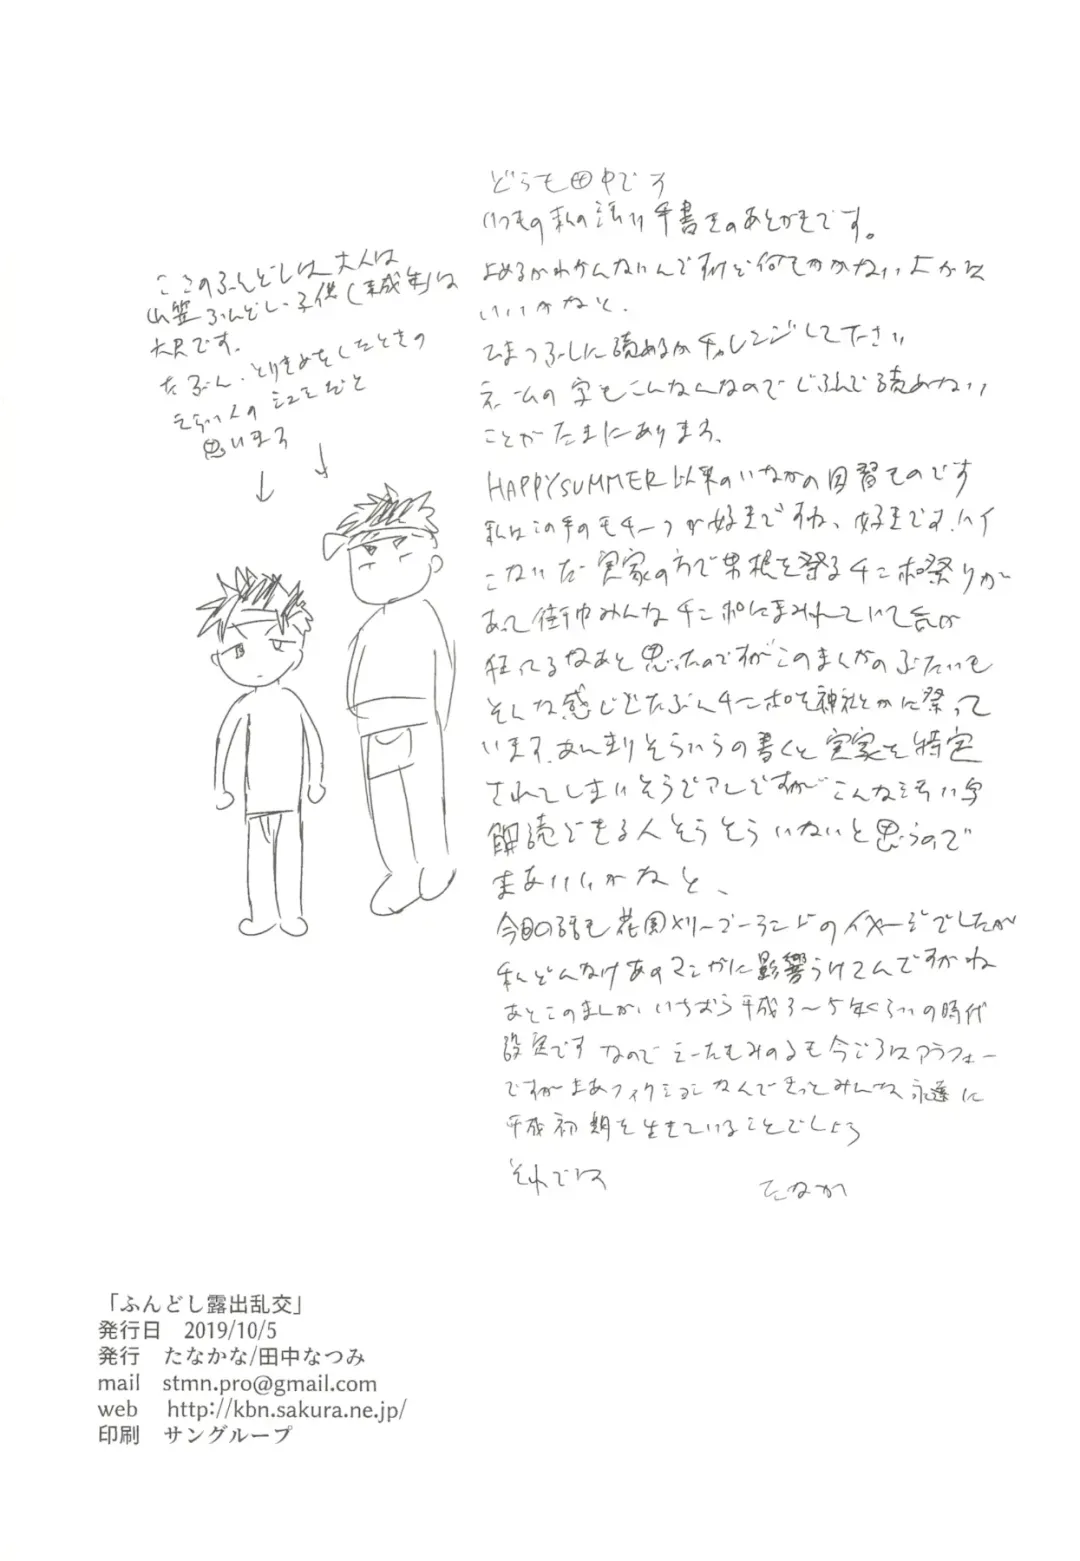 ここのふんどしは大人は
山笠ふんどし、子供(未成年)は
六尺です。
たぶん、とりきめをしたときの
えらい人のシュミだと
思います
どうも田中です
いつもの私の汚い手書きのあとがきです。
よめるかわかんないんですけど何てかかない よかは
いいかなと、
ひまつぶしに読めるかチャレンジして下さい
ネームの字もこんなんなのでじぶんで読めない
ことがたまにあります。
HAPPYSUMMER以来のいなかの因習ものです
私はこの手のモチーフが好きですね、好きです。ハイ
こないだ実家の方で男根を祭るチンポ祭りが
あって街中みんなチンポにまみれていて気が
狂ってるなあと思ったのですがこのまんがのぶたいも
そんな感じでたぶんチンポを神社とかに祭って
います。あんまりそういうの書くと実家を特定
されてしまいそうでアレですがこんな汚い字
解読できる人そうそういないと思うので
まあいいかなと、
今回の話も花園メリーゴーランドのイメージでしたが
私どんだけあのマンガに影響うけてんですかね
あとこのまんが、いちおう平成3〜5年くらいの時代
設定です なので もみのるも今ごろはアラフォー
ですがまあフィクションなんできっとみんな永遠に
平成初期を生きていることでしょう
それでは
たなか
「ふんどし露出乱交」
発行日　2019/10/5
発行　たなかな/田中なつみ
mail　stmn.pro@gmail.com
web　http://kbn.sakura.ne.jp/
印刷　サングループ